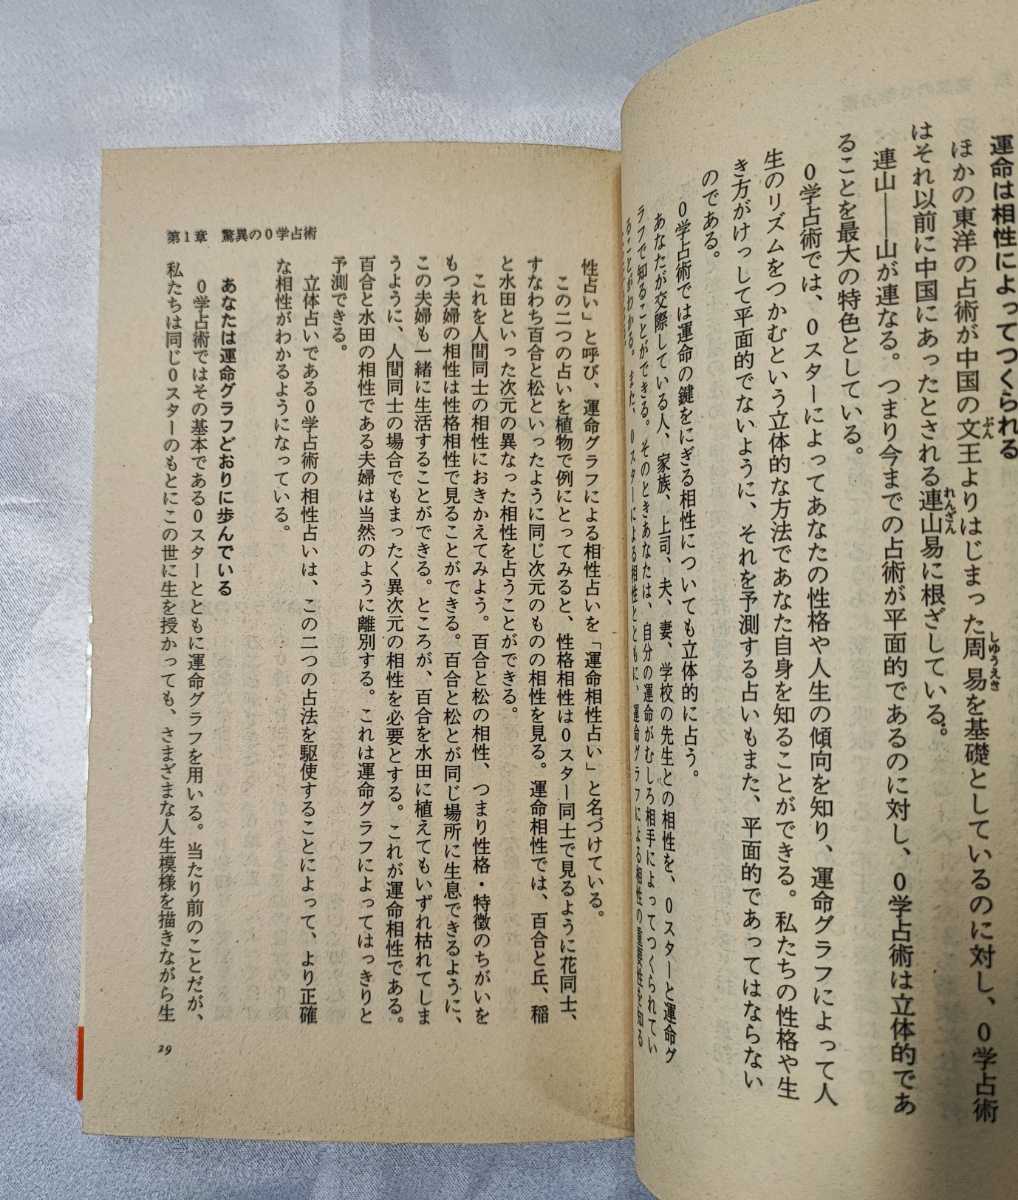 運命は相性によってつくられる
ほかの東洋の占術が中国の文王よりはじまった周易を基礎としているのに対し、0学占術
はそれ以前に中国にあったとされる連山易に根ざしている。
連山――山が連なる。つまり今までの占術が平面的であるのに対し、0学占術は立体的であ
ることを最大の特色としている。
0学占術では、0スターによってあなたの性格や人生の傾向を知り、運命グラフによって人
生のリズムをつかむという立体的な方法であなた自身を知ることができる。私たちの性格や生
き方がけっして平面的でないように、それを予測する占いもまた、平面的であってはならない
のである。
0学占術では運命の鍵をにぎる相性についても立体的に占う。
あなたが交際している人、家族、上司、夫、妻、学校の先生との相性を、0スターと運命グ
ラフで知ることができる。そのときあなたは、自分の運命がむしろ相手によってつくられてい
ることがわかる。また、0スターによる相性とともに、運命グラフによる相性の重要性を知る
第1章 驚異の0学占術
性占い」と呼び、運命グラフによる相性占いを「運命相性占い」と名づけている。
この二つの占いを植物で例にとってみると、性格相性は0スター同士で見るように花同士、
すなわち百合と松といったように同じ次元のものの相性を見る。運命相性では、百合と丘、稲
と水田といった次元の異なった相性を占うことができる。
これを人間同士の相性におきかえてみよう。百合と松の相性、つまり性格・特徴のちがいを
もつ夫婦の相性は性格相性で見ることができる。百合と松とが同じ場所に生息できるように、
この夫婦も一緒に生活することができる。ところが、百合を水田に植えてもいずれ枯れてしま
うように、人間同士の場合でもまったく異次元の相性を必要とする。これが運命相性である。
百合と水田の相性である夫婦は当然のように離別する。これは運命グラフによってはっきりと
予測できる。
立体占いである0学占術の相性占いは、この二つの占法を駆使することによって、より正確
な相性がわかるようになっている。
あなたは運命グラフどおりに歩んでいる
0学占術ではその基本である0スターとともに運命グラフを用いる。当たり前のことだが、
私たちは同じ0スターのもとにこの世に生を授かっても、さまざまな人生模様を描きながら生
29